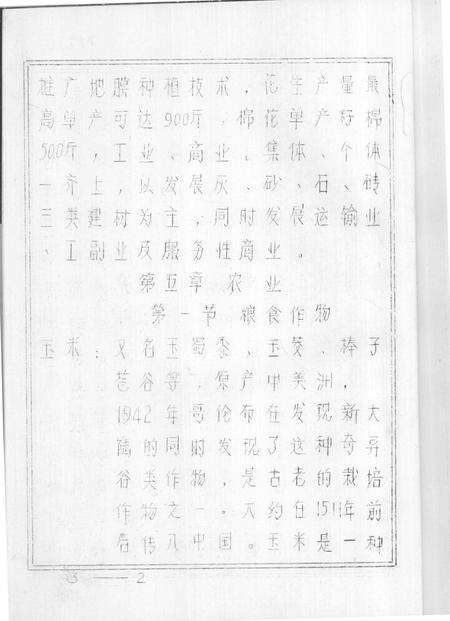 推广地膜种植技术，花生产量最
高单产可达900斤，棉花单产籽棉
500斤，工业、商业、集体、个体
一齐上，以发展灰、砂、石、砖
三类建材为主，同时发展运输业
、工副业及服务性商业。
第五章 农业
第一节 粮食作物
玉米：又名玉蜀黍、玉茭、棒子
苞谷等，原产中美洲，
1942年哥伦布在发现新大
陆的同时发现了这种奇异
谷类作物，是古老的栽培
作物之一。大约在1511年前
后传入中国。玉米是一种
3——2